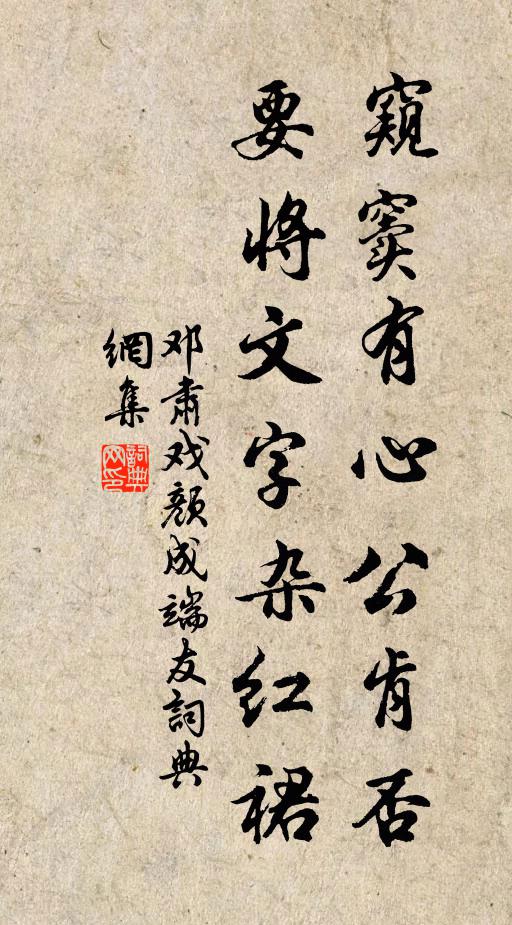 窺竇有心公肯否
要将文字杂红裙
邓肅戏颜成端友詞典
網集
詞典网印